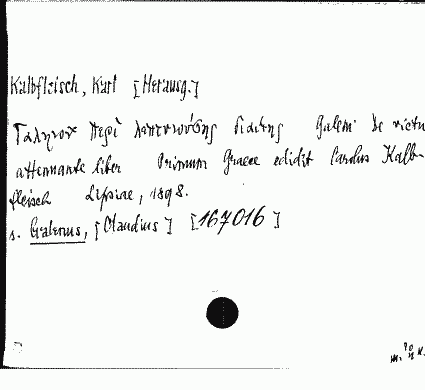 Kalbfleisch, Karl [Herausg.]
Γαληνου περὶ λεπτυνούσης διαίτης Galeni de victu
attenuante liber Primum Graece edidit Carolus Kalb-
fleisch Lipsiae, 1898.
s. Galenus, [Claudius] [167016]